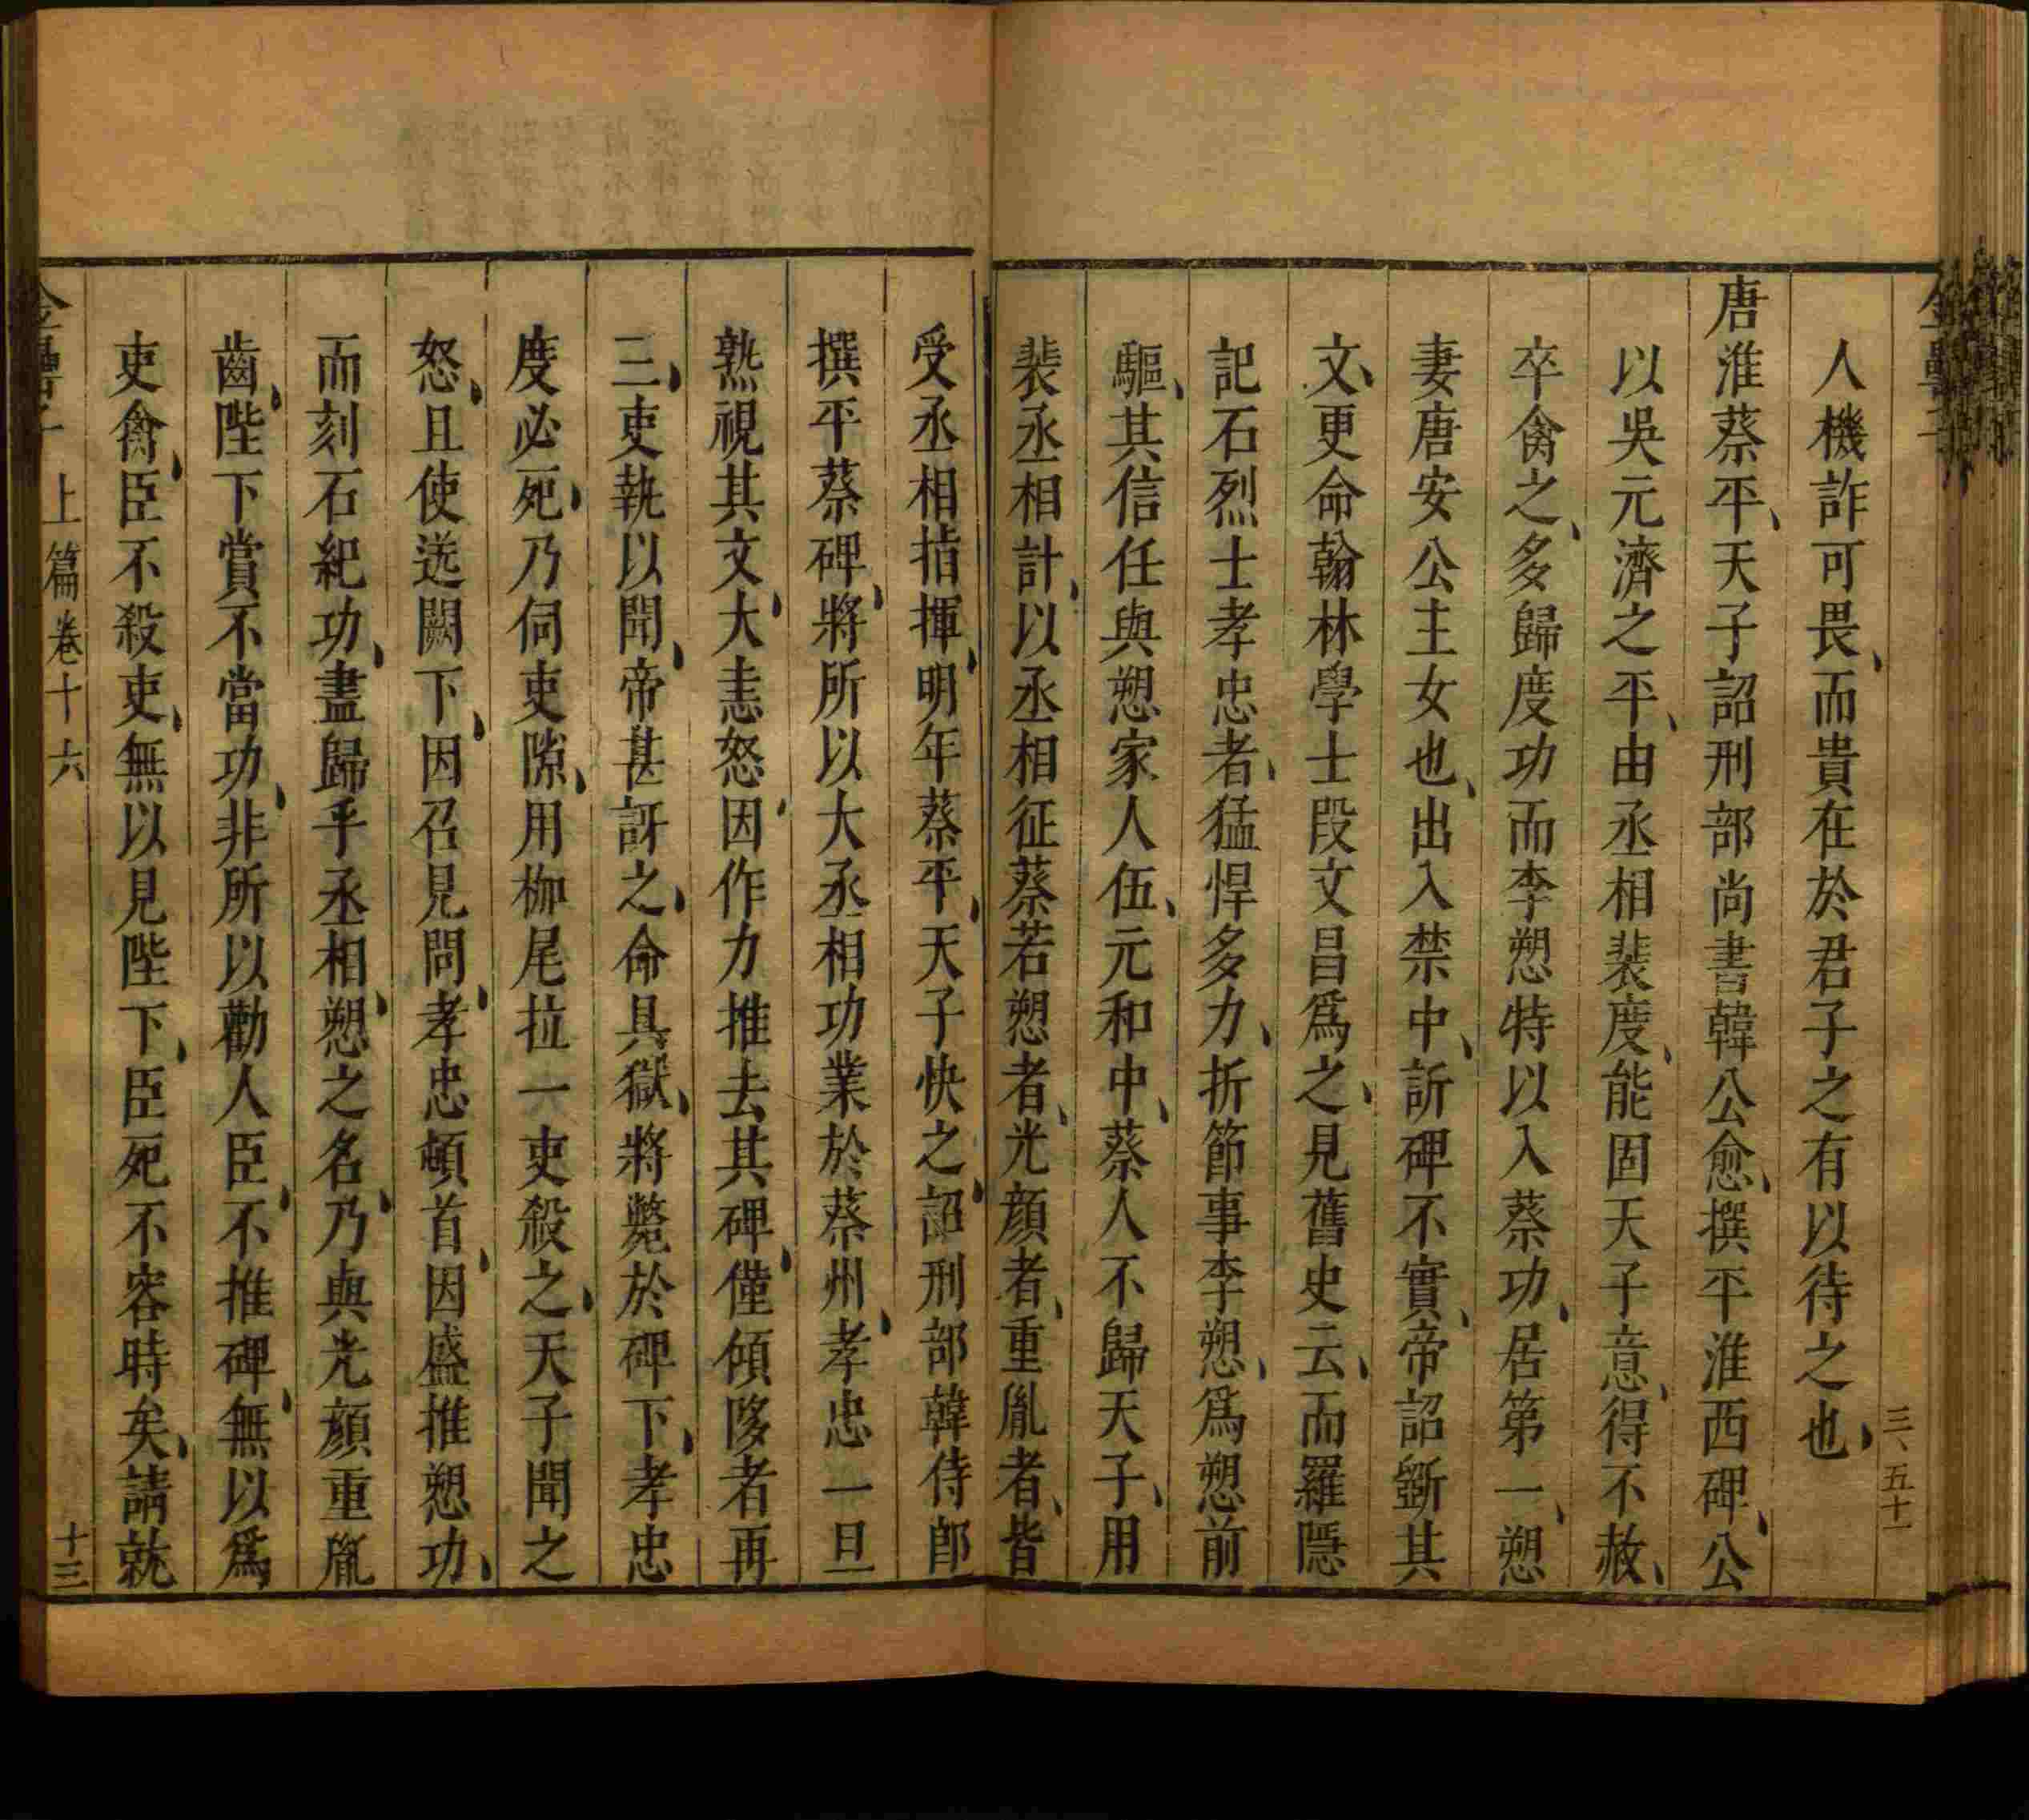 三、五十一
人機詐可畏、而貴在於君子之有以待之也、
唐淮蔡平、天子詔刑部尚書韓公愈、撰平淮西碑、公
以吳元濟之平、由丞相裴度、能固天子意、得不赦、
卒禽之、多歸度功而李愬特以入蔡功、居第一、愬
妻唐安公主女也、出入禁中、訢碑不實、帝詔斲其
文、更命翰林學士段文昌爲之、見舊史云、而羅隱
記石烈士孝忠者、猛悍多力、折節事李愬、爲愬前
驅、其信任與愬家人伍、元和中、蔡人不歸天子、用
裴丞相計、以丞相征蔡若愬者、光顔者、重胤者、皆
受丞相指揮、明年蔡平、天子快之、詔刑部韓侍郎
撰平蔡碑、將所以大丞相功業於蔡州、孝忠一旦
熟視其文、大恚怒、因作力推去其碑、僅傾陊者再
三、吏執以聞、帝甚訝之、命具獄、將斃於碑下、孝忠
度必死、乃伺吏隙、用枷尾拉一吏殺之、天子聞之
怒、且使送闕下、因召見問、孝忠頓首、因盛推愬功、
而刻石紀功、盡歸乎丞相、愬之名、乃與光顔重胤
齒、陛下賞不當功、非所以勸人臣、不推碑、無以爲
吏禽、臣不殺吏、無以見陛下、臣死不容時矣、請就
金罍子 上篇卷十六 十三